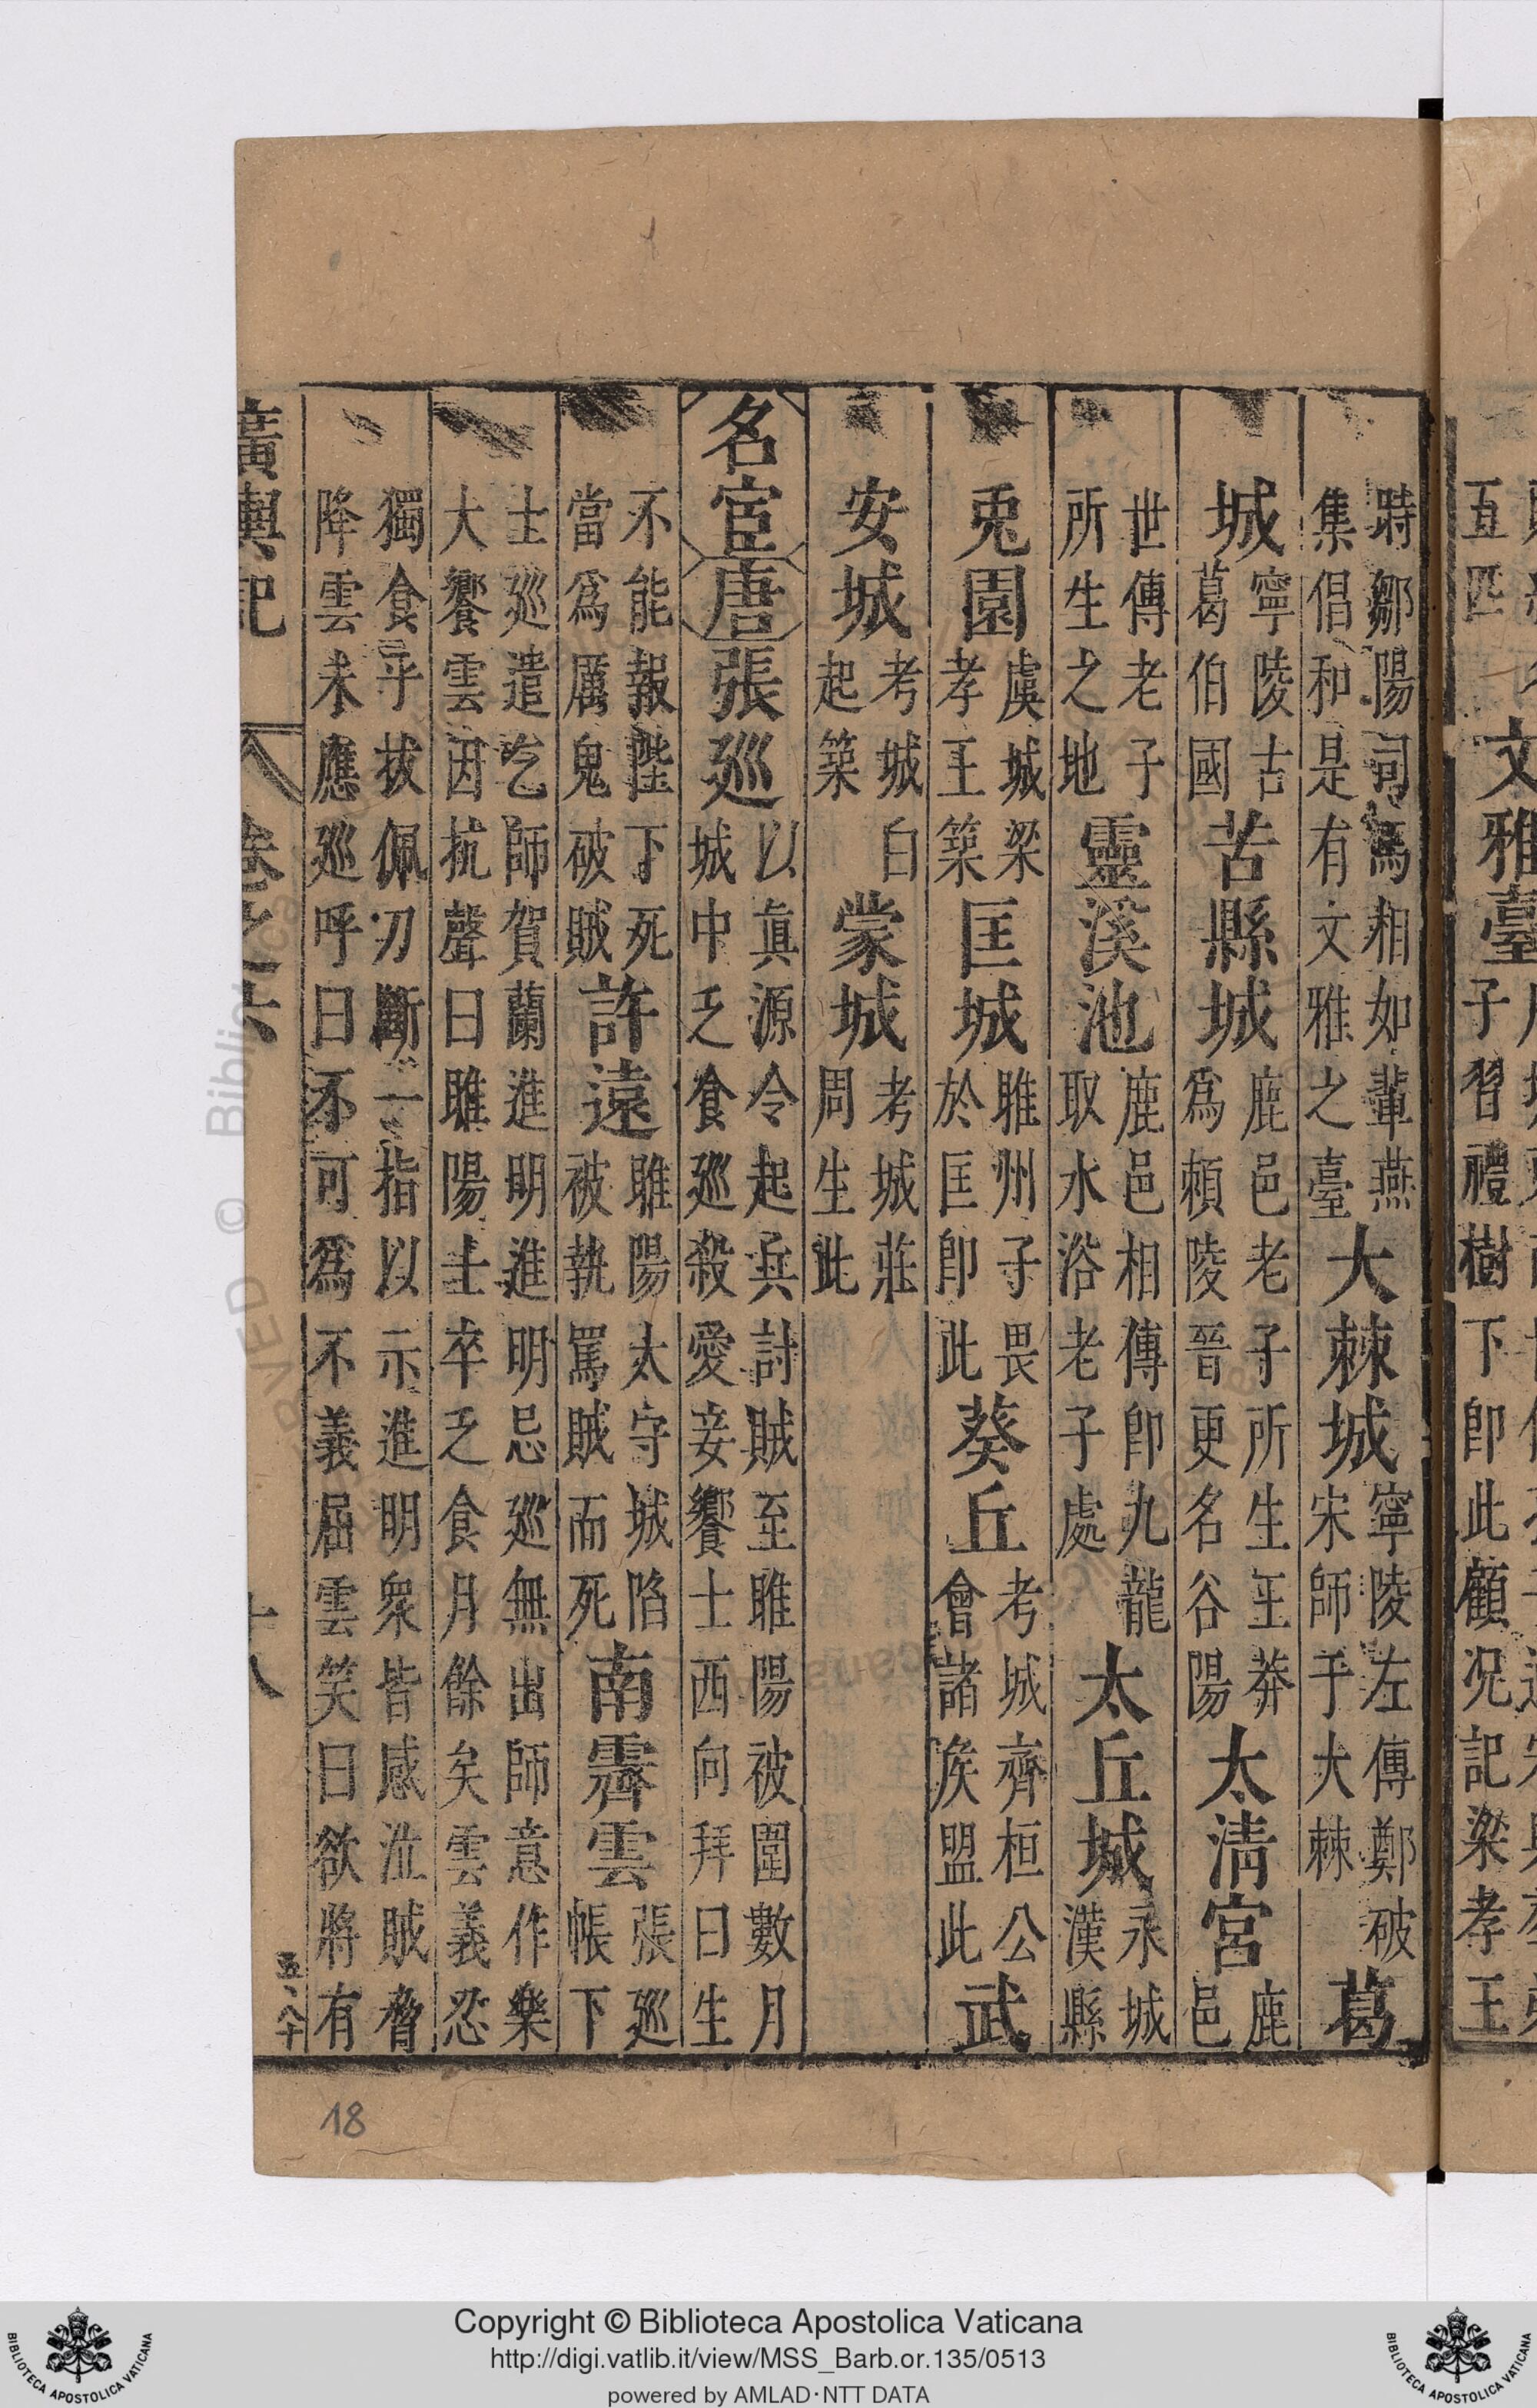 五匹
文雅臺
子習禮樹下即此顧況記梁孝王
時鄒陽司馬相如輩燕集倡和是有文雅之臺大棘城寧陵左傳鄭破宋師于大棘葛
城寧陵古葛伯國苦縣城鹿邑老子所生王莽爲賴陵晉更名谷陽太清宮鹿邑
世傳老子所生之地靈溪池鹿邑相傳即九龍取水浴老子處太丘城永城漢縣
兎園虞城梁孝王築匡城睢州子畏於匡即此葵丘考城齊桓公會諸侯盟此武
安城考城白起築蒙城考城莊周生此
名宦唐張廵以眞源令起兵討賊至睢陽被圍數月城中乏食廵殺愛妾饗士西向拜曰生
不能報陛下死當爲厲鬼破賊許遠睢陽太守城陷被執罵賊而死南霽雲張廵帳下
士廵遣乞師賀蘭進明進明忌廵無出師意作樂大饗雲因抗聲曰睢陽士卒乏食月餘矣雲義忍
獨食乎拔佩刃斷一指以示進明衆皆感泣賊脅降雲未應廵呼曰不可爲不義屈雲笑曰欲將有
廣輿記 卷之六 十八
18
Copyright © Biblioteca Apostolica Vaticana
http://digi.vatlib.it/view/MSS_Barb.or.135/0513
powered by AMLAD·NTT DATA
BIBLIOTECA APOSTOLICA VATICANA
BIBLIOTECA APOSTOLICA VATICANA